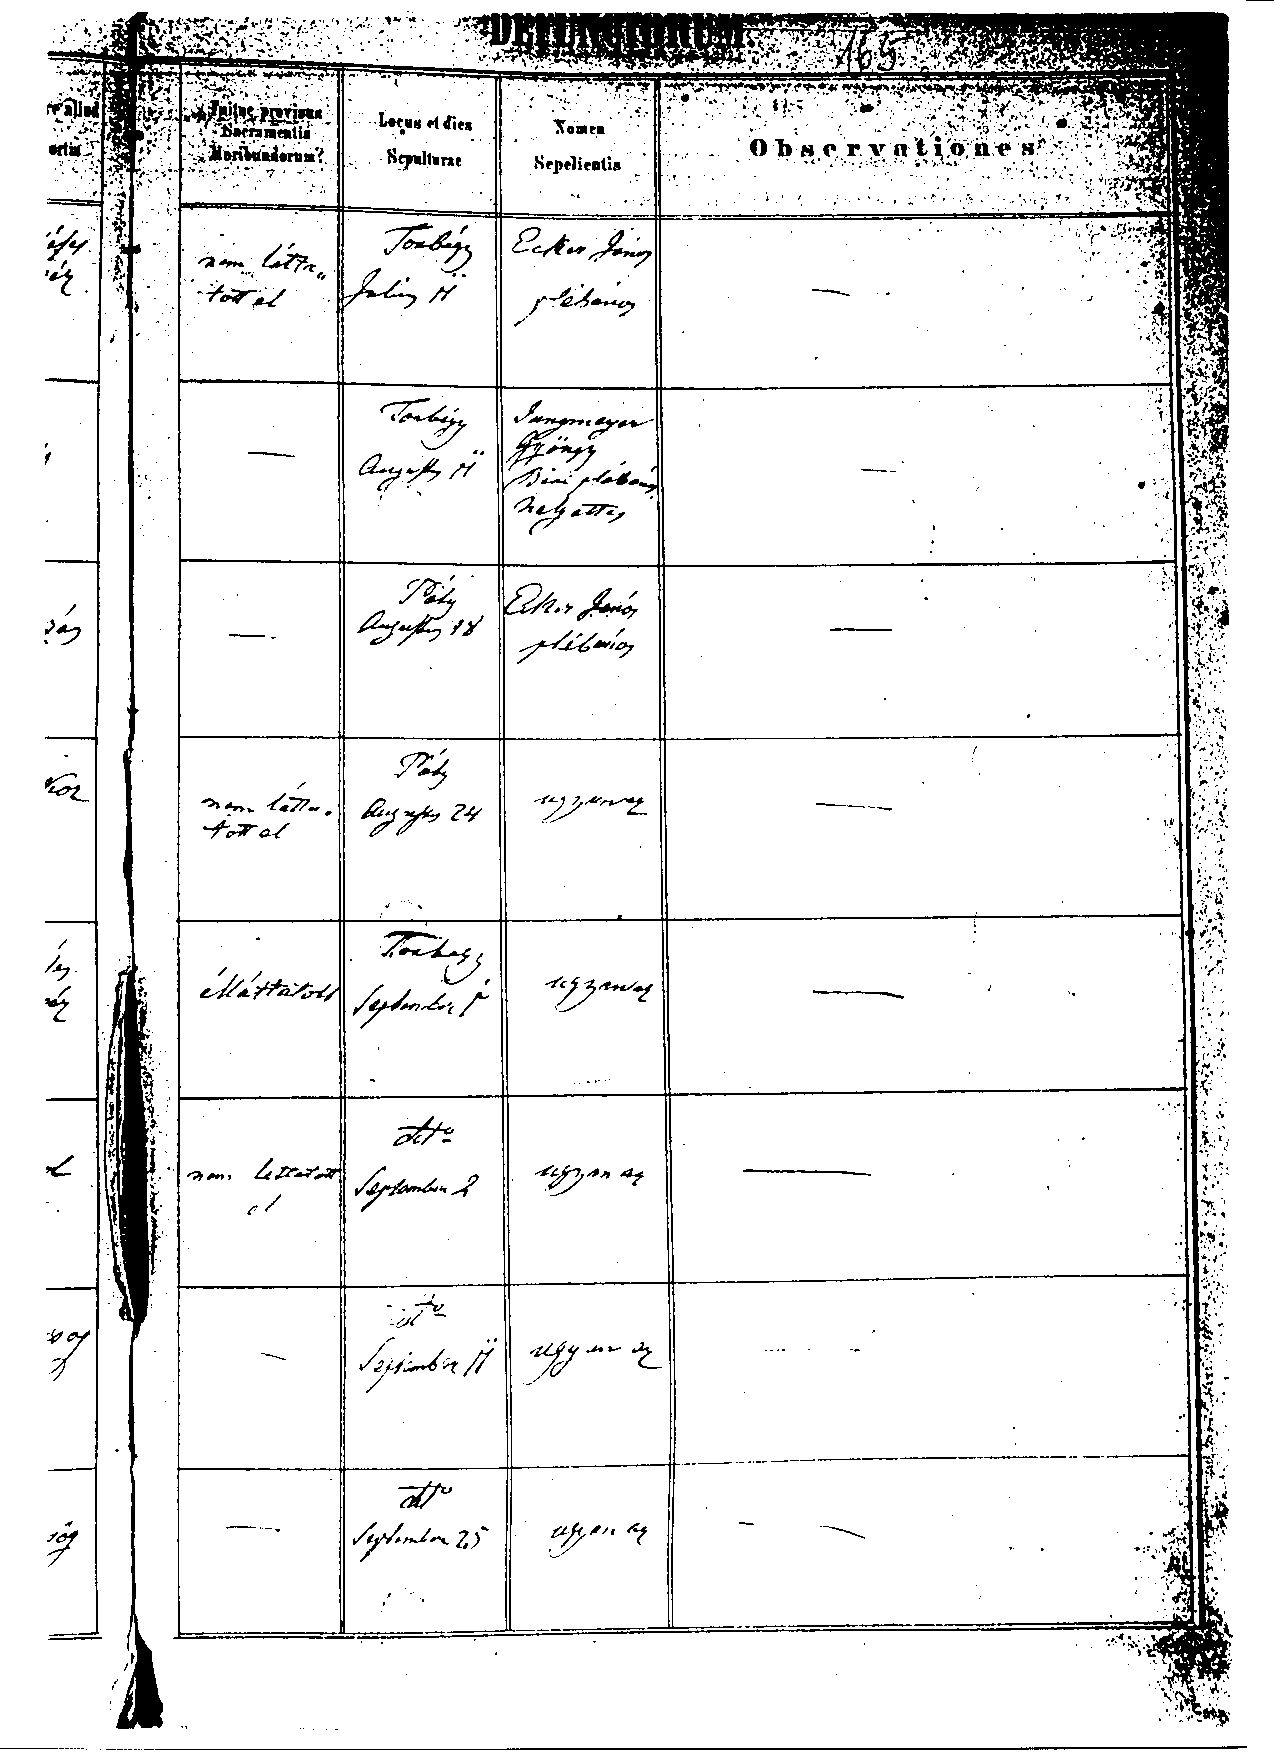 DEFUNCTORUM.
165
Initae provisus
Sacramentis
Moribundorum?
Locus et dies
Sepulturae
Nomen
Sepelientis
Observationes
nem látta-
tott el
Torbágy
Julius 11
Ecker János
plébános
—
—
Torbágy
Augustus 11
Jungmayer
György
Biai plébános
helyettes
—
—
Páty
Augustus 18
Ecker János
plébános
—
nem látta-
tott el
Páty
Augustus 24
ugyanaz
—
elláttatott
Torbagy
September 1
ugyanaz
—
nem lettatott
el
dtto
September 2
ugyan az
—
—
dtto
September 11
ugyan az
—
dtto
September 25
ugyan az
—